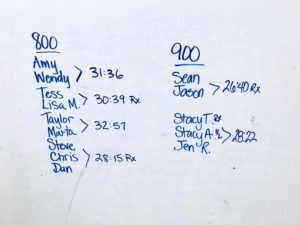 800
Amy
Wendy > 31:36
Tess
Lisa M. > 30:39 Rx
Taylor
Marta > 32:57
Steve
Chris > 28:15 Rx
Dan
900
Sean
Jason > 26:40 Rx
Stacy T. Rx
Stacy A. > 28:22
Jen R.